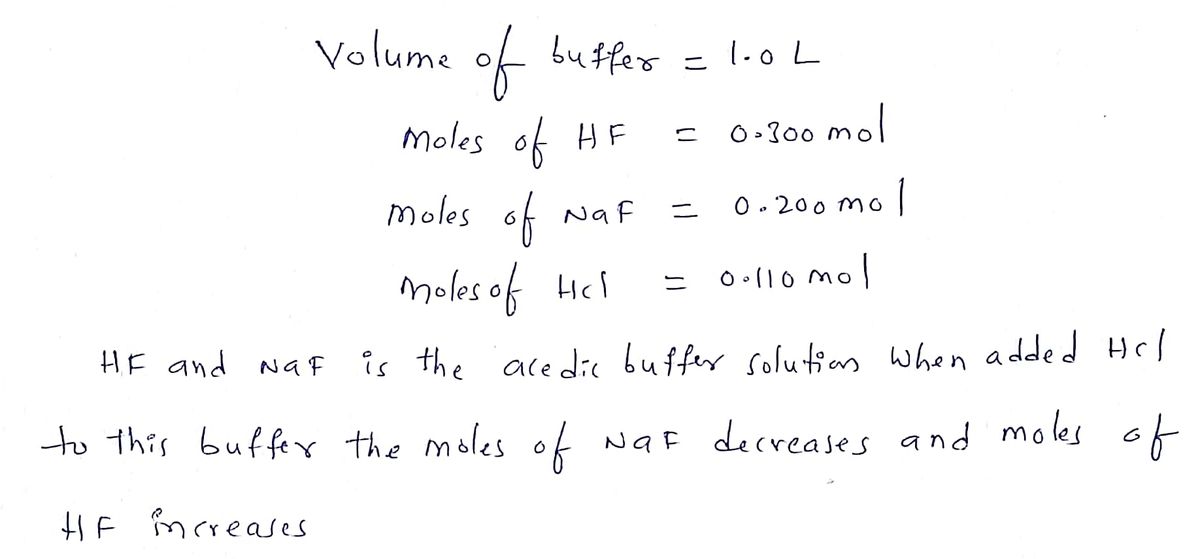 Volume of buffer = 1.0 L
moles of HF = 0.300 mol
moles of NaF = 0.200 mol
moles of Hcl = 0.110 mol
HF and NaF is the acedic buffer solution when added Hcl
to this buffer the moles of NaF decreases and moles of
HF increases